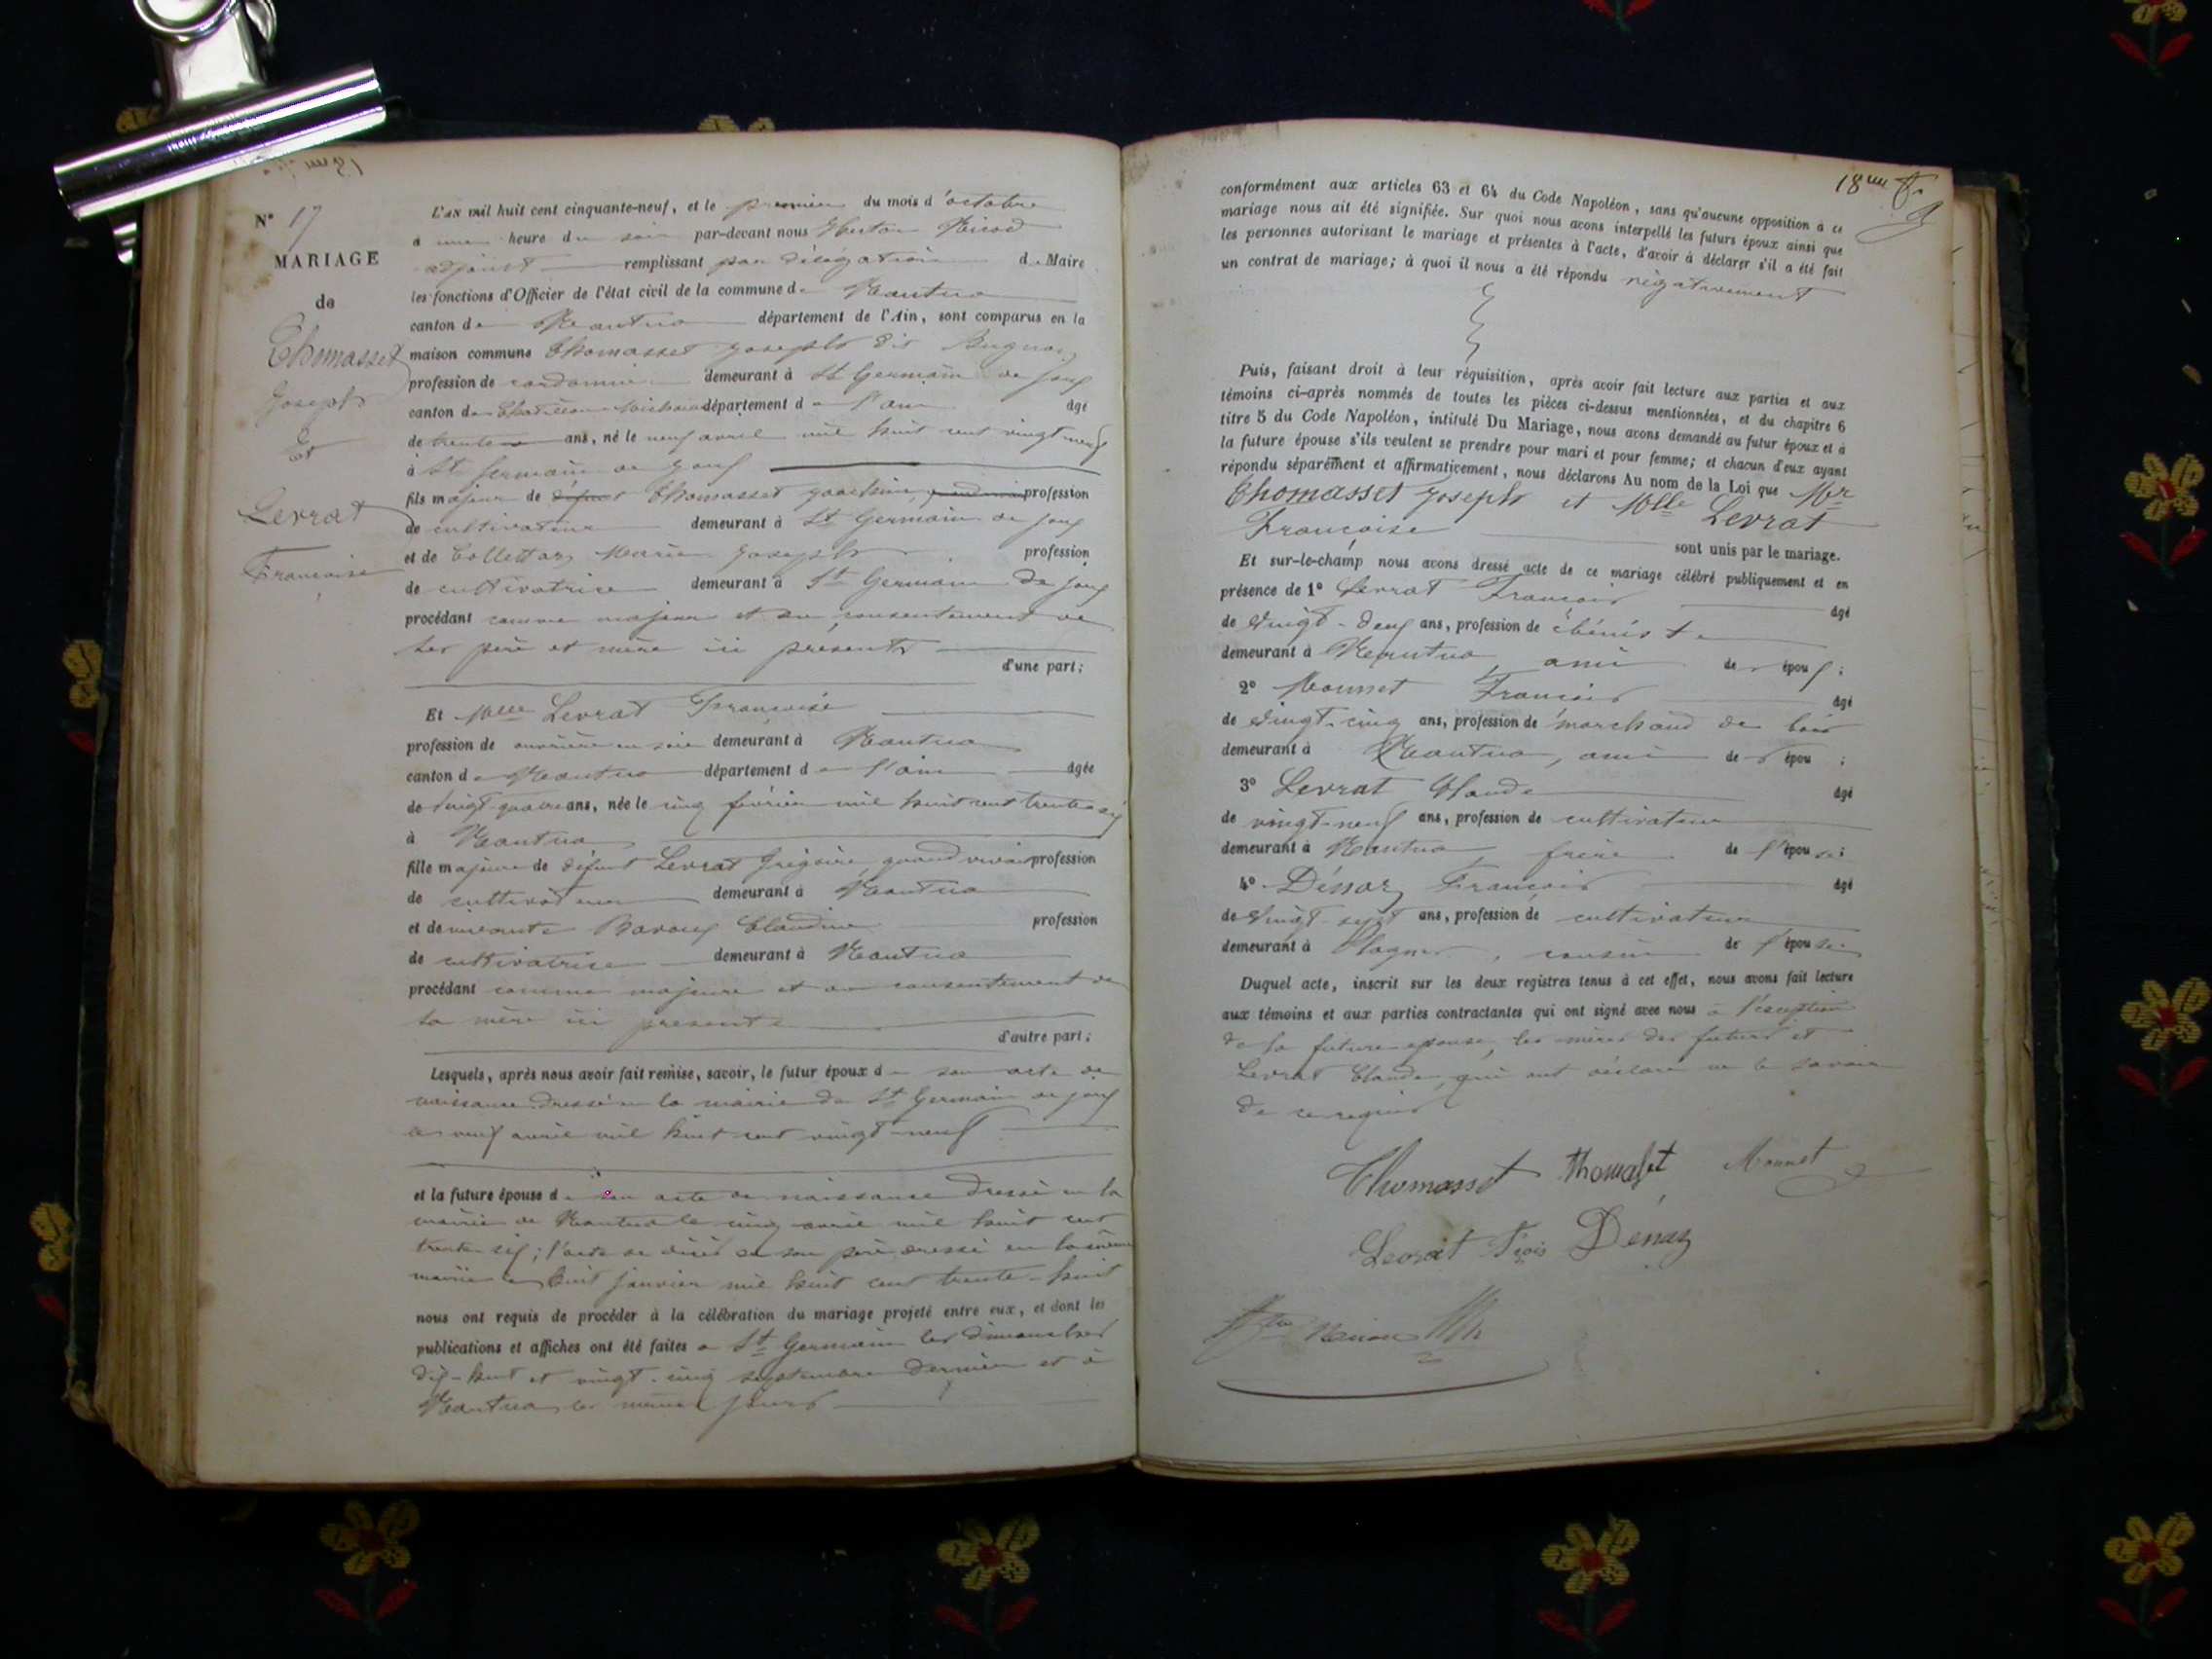 N° 17
MARIAGE
de
Thomasset
Joseph
Et
Levrat
Françoise
L'an mil huit cent cinquante-neuf, et le premier du mois d'octobre
à une heure du soir par-devant nous
adjoint remplissant par délégation de Maire
les fonctions d'Officier de l'état civil de la commune de Nantua
canton de Nantua département de l'Ain, sont comparus en la
maison commune Thomasset Joseph dit
profession de cordonnier demeurant à St Germain de Joux
canton de Chatillon Michaille département de l'ain âgé
de trente ans, né le neuf avril mil huit cent vingt neuf
à St Germain de Joux
fils majeur de Thomasset Joachim, profession
de cultivateur demeurant à St Germain de Joux
et de Collettaz Marie Joseph profession
de cultivatrice demeurant à St Germain de Joux
procédant comme majeur et du consentement de
ses père et mère ici présents
d'une part;
Et Melle Levrat Françoise
profession de ouvrière en soie demeurant à Nantua
canton de Nantua département de l'ain âgée
de vingt-quatre ans, née le cinq février mil huit cent trente six
à Nantua
fille majeure de défunt Levrat Grégoire, quand vivait profession
de cultivateur demeurant à Nantua
et de vivante Claudine profession
de cultivatrice demeurant à Nantua
procédant comme majeure et du consentement de
sa mère ici présente
d'autre part;
Lesquels, après nous avoir fait remise, savoir, le futur époux de son acte de
naissance dressé en la mairie de St Germain de Joux
le neuf avril mil huit cent vingt-neuf
et la future épouse de son acte de naissance dressé en la
mairie de Nantua le cinq avril mil huit cent
trente-six; l'acte de décès de son père dressé en la même
mairie le huit janvier mil huit cent trente-huit
nous ont requis de procéder à la célébration du mariage projeté entre eux, et dont les
publications et affiches ont été faites à St Germain les dimanches
dix-huit et vingt-cinq septembre dernier et à
Nantua les mêmes jours
18me
conformément aux articles 63 et 64 du Code Napoléon, sans qu'aucune opposition à ce
mariage nous ait été signifiée. Sur quoi nous avons interpellé les futurs époux ainsi que
les personnes autorisant le mariage et présentes à l'acte, d'avoir à déclarer s'il a été fait
un contrat de mariage; à quoi il nous a été répondu négativement
Puis, faisant droit à leur réquisition, après avoir fait lecture aux parties et aux
témoins ci-après nommés de toutes les pièces ci-dessus mentionnées, et du chapitre 6
titre 5 du Code Napoléon, intitulé Du Mariage, nous avons demandé au futur époux et à
la future épouse s'ils veulent se prendre pour mari et pour femme; et chacun d'eux ayant
répondu séparément et affirmativement, nous déclarons Au nom de la Loi que Mr
Thomasset Joseph et Melle Levrat
Françoise
sont unis par le mariage.
Et sur-le-champ nous avons dressé acte de ce mariage célébré publiquement et en
présence de 1° Levrat François âgé
de vingt-deux ans, profession de ébéniste
demeurant à Nantua, ami de époux;
2° Monnet François âgé
de vingt-cinq ans, profession de marchand de bois
demeurant à Nantua, ami de épou;
3° Levrat Claude âgé
de vingt-neuf ans, profession de cultivateur
demeurant à Nantua, frère de l'épouse;
4° Dénaz François âgé
de vingt-sept ans, profession de cultivateur
demeurant à , cousin de l'épouse
Duquel acte, inscrit sur les deux registres tenus à cet effet, nous avons fait lecture
aux témoins et aux parties contractantes qui ont signé avec nous à l'exception
de la future épouse, les mères des futurs et
Levrat Claude, qui ont déclaré ne le savoir
de ce requis
Thomasset Thomasset Monnet
Levrat Fçois Dénaz